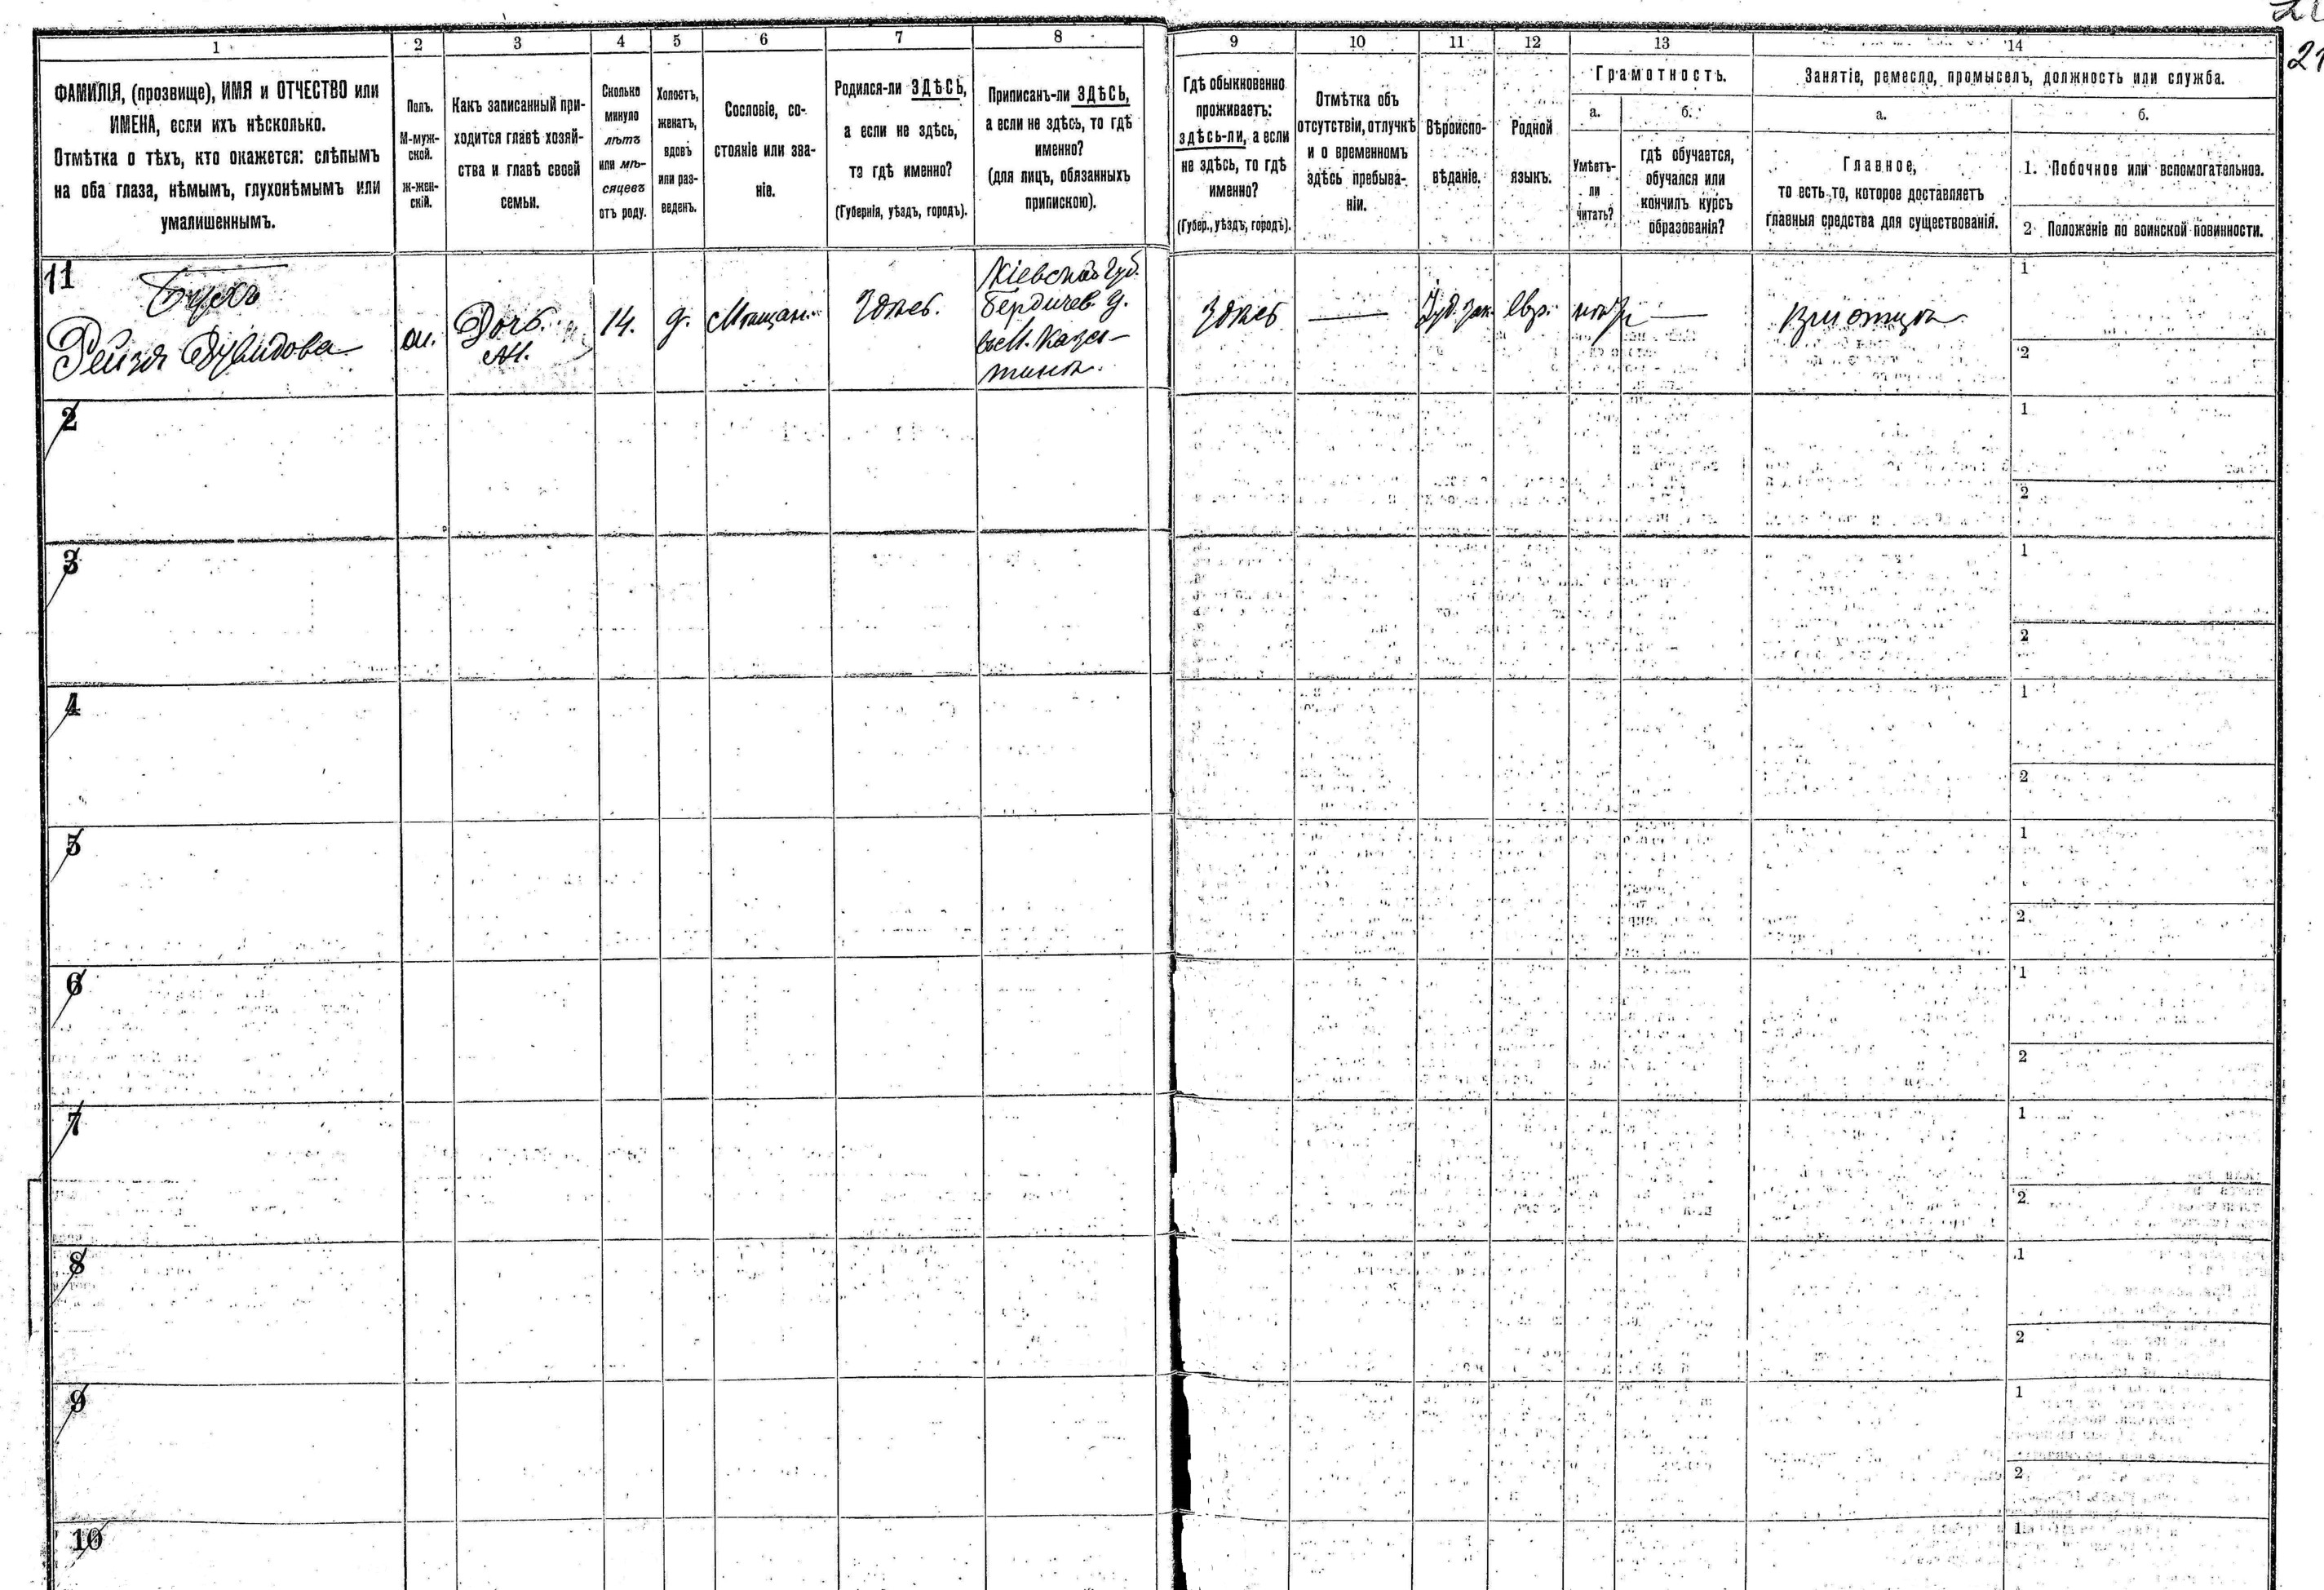 21
1
2
3
4
5
6
7
8
9
10
11
12
13
14
ФАМИЛІЯ, (прозвище), ИМЯ и ОТЧЕСТВО или
ИМЕНА, если ихъ нѣсколько.
Отмѣтка о тѣхъ, кто окажется: слѣпымъ
на оба глаза, нѣмымъ, глухонѣмымъ или
умалишеннымъ.
Полъ.
М-муж-
ской.
Ж-жен-
скій.
Какъ записанный при-
ходится главѣ хозяй-
ства и главѣ своей
семьи.
Сколько
минуло
лѣтъ
или мѣ-
сяцевъ
отъ роду.
Холостъ,
женатъ,
вдовъ
или раз-
веденъ.
Сословіе, со-
стояніе или зва-
ніе.
Родился-ли ЗДѢСЬ,
а если не здѣсь,
то гдѣ именно?
(Губернія, уѣздъ, городъ).
Приписанъ-ли ЗДѢСЬ,
а если не здѣсь, то гдѣ
именно?
(для лицъ, обязанныхъ
припискою).
Гдѣ обыкновенно
проживаетъ:
здѣсь-ли, а если
не здѣсь, то гдѣ
именно?
(Губер., уѣздъ, городъ).
Отмѣтка объ
отсутствіи, отлучкѣ
и о временномъ
здѣсь пребыва-
ніи.
Вѣроиспо-
вѣданіе.
Родной
языкъ.
Грамотность.
а.
Умѣетъ-
ли
читать?
б.
гдѣ обучается,
обучался или
кончилъ курсъ
образованія?
Занятіе, ремесло, промыселъ, должность или служба.
а.
Главное,
то есть то, которое доставляетъ
главныя средства для существованія.
б.
1. Побочное или вспомогательное.
2 Положеніе по воинской повинности.
11
Бухъ
Рейзя Дувидова
ж.
Дочь
14.
д.
Мѣщан.
Здѣсь.
Кіевской Губ.
Бердичев. у.
въ М. Каза-
тинѣ.
Здѣсь
—
Іуд. зак.
Евр.
нѣтъ
—
при отцѣ
1
2
2
1
2
3
1
2
4
1
2
5
1
2
6
1
2
7
1
2
8
1
2
9
1
2
10
1